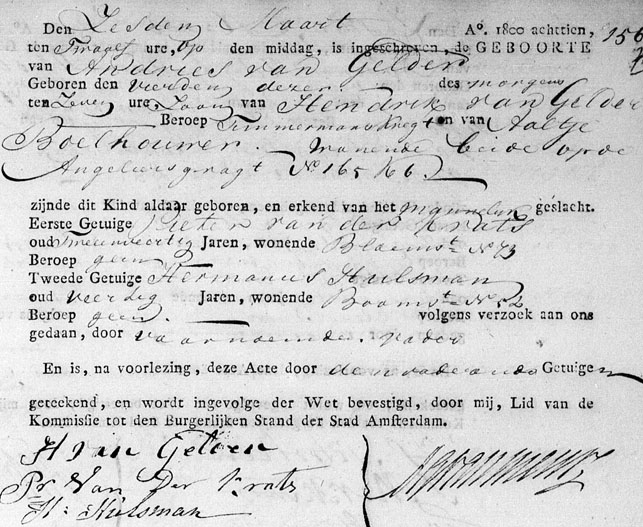 Den Zesden Maart A⁰. 1800 achttien,
ten Twaalf ure, op den middag, is ingeschreven, de GEBOORTE
van Andries van Gelder
Geboren den vierden dezer des morgens
ten Zeven ure, Zoon van Hendrik van Gelder
Beroep Timmermansknegt en van Aaltje
Boethouwer. wonende beide op de
Angeliersgragt N⁰. 165
zijnde dit Kind aldaar geboren, en erkend van het mannelyk geslacht.
Eerste Getuige Pieter van der Krats
oud Tweeveertig Jaren, wonende Bloemst N⁰ 73
Beroep geen
Tweede Getuige Hermanus Hulsman
oud veertig Jaren, wonende Boomst N⁰ 52
Beroep geen. volgens verzoek aan ons
gedaan, door voornoemde vader
En is, na voorlezing, deze Acte door den vader ende Getuigen
geteekend, en wordt ingevolge der Wet bevestigd, door mij, Lid van de
Kommissie tot den Burgerlijken Stand der Stad Amsterdam.
H van Gelder
Pr. Van Der Krats
H. Hulsman